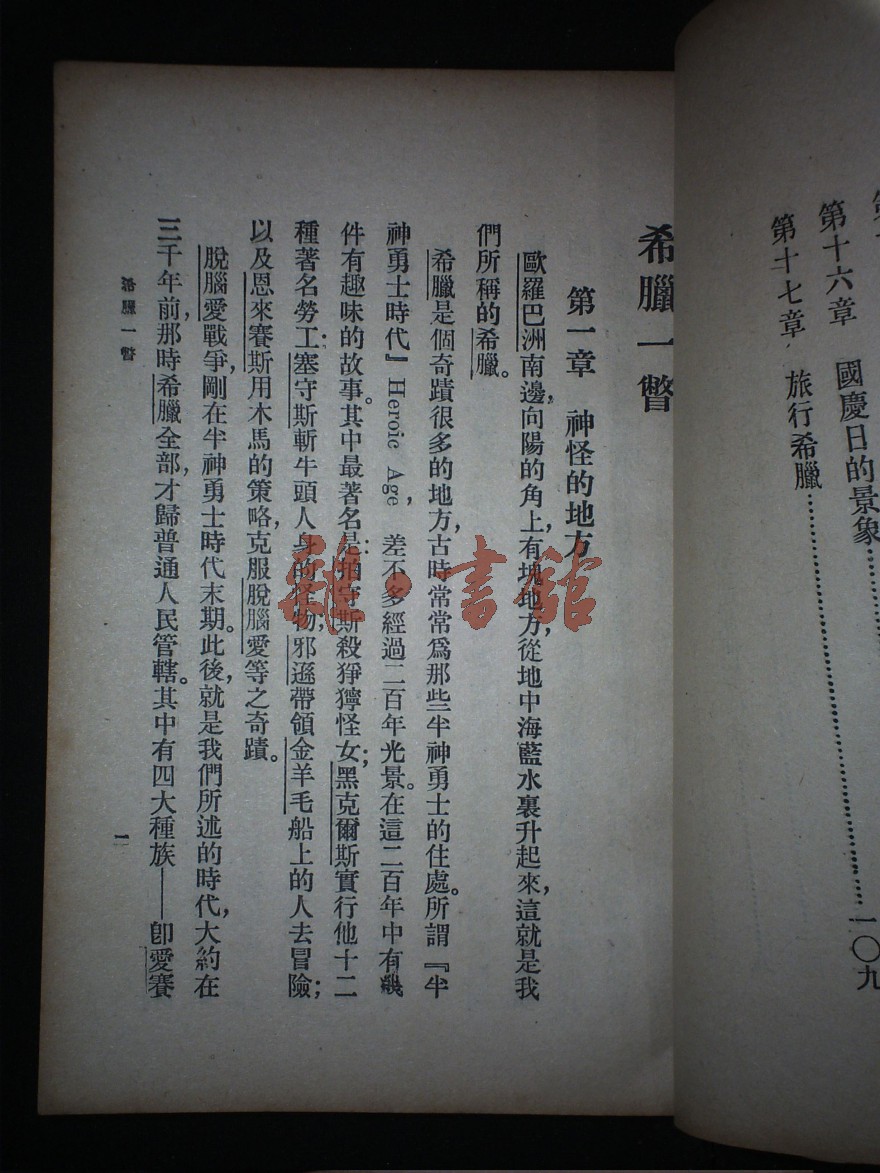 第十六章　國慶日的景象……
第十七章　旅行希臘……一〇九
希臘一瞥
第一章　神怪的地方
歐羅巴洲南邊，向陽的角上有塊地方，從地中海藍水裏升起來，這就是我
們所稱的希臘。
希臘是個奇蹟很多的地方，古時常常爲那些半神勇士的住處。所謂『半
神勇士時代』Heroic Age，差不多經過二百年光景。在這二百年中有幾
件有趣味的故事。其中最著名是：拍守斯殺猙獰怪女；黑克爾斯實行他十二
種著名勞工；塞守斯斬牛頭人身的怪物；邪遜帶領金羊毛船上的人去冒險；
以及恩來賽斯用木馬的策略，克服脫腦愛等之奇蹟。
脫腦愛戰爭，剛在半神勇士時代末期。此後，就是我們所述的時代，大約在
三千年前，那時希臘全部，才歸普通人民管轄。其中有四大種族——卽愛賽
希臘一瞥
一
雜·書館